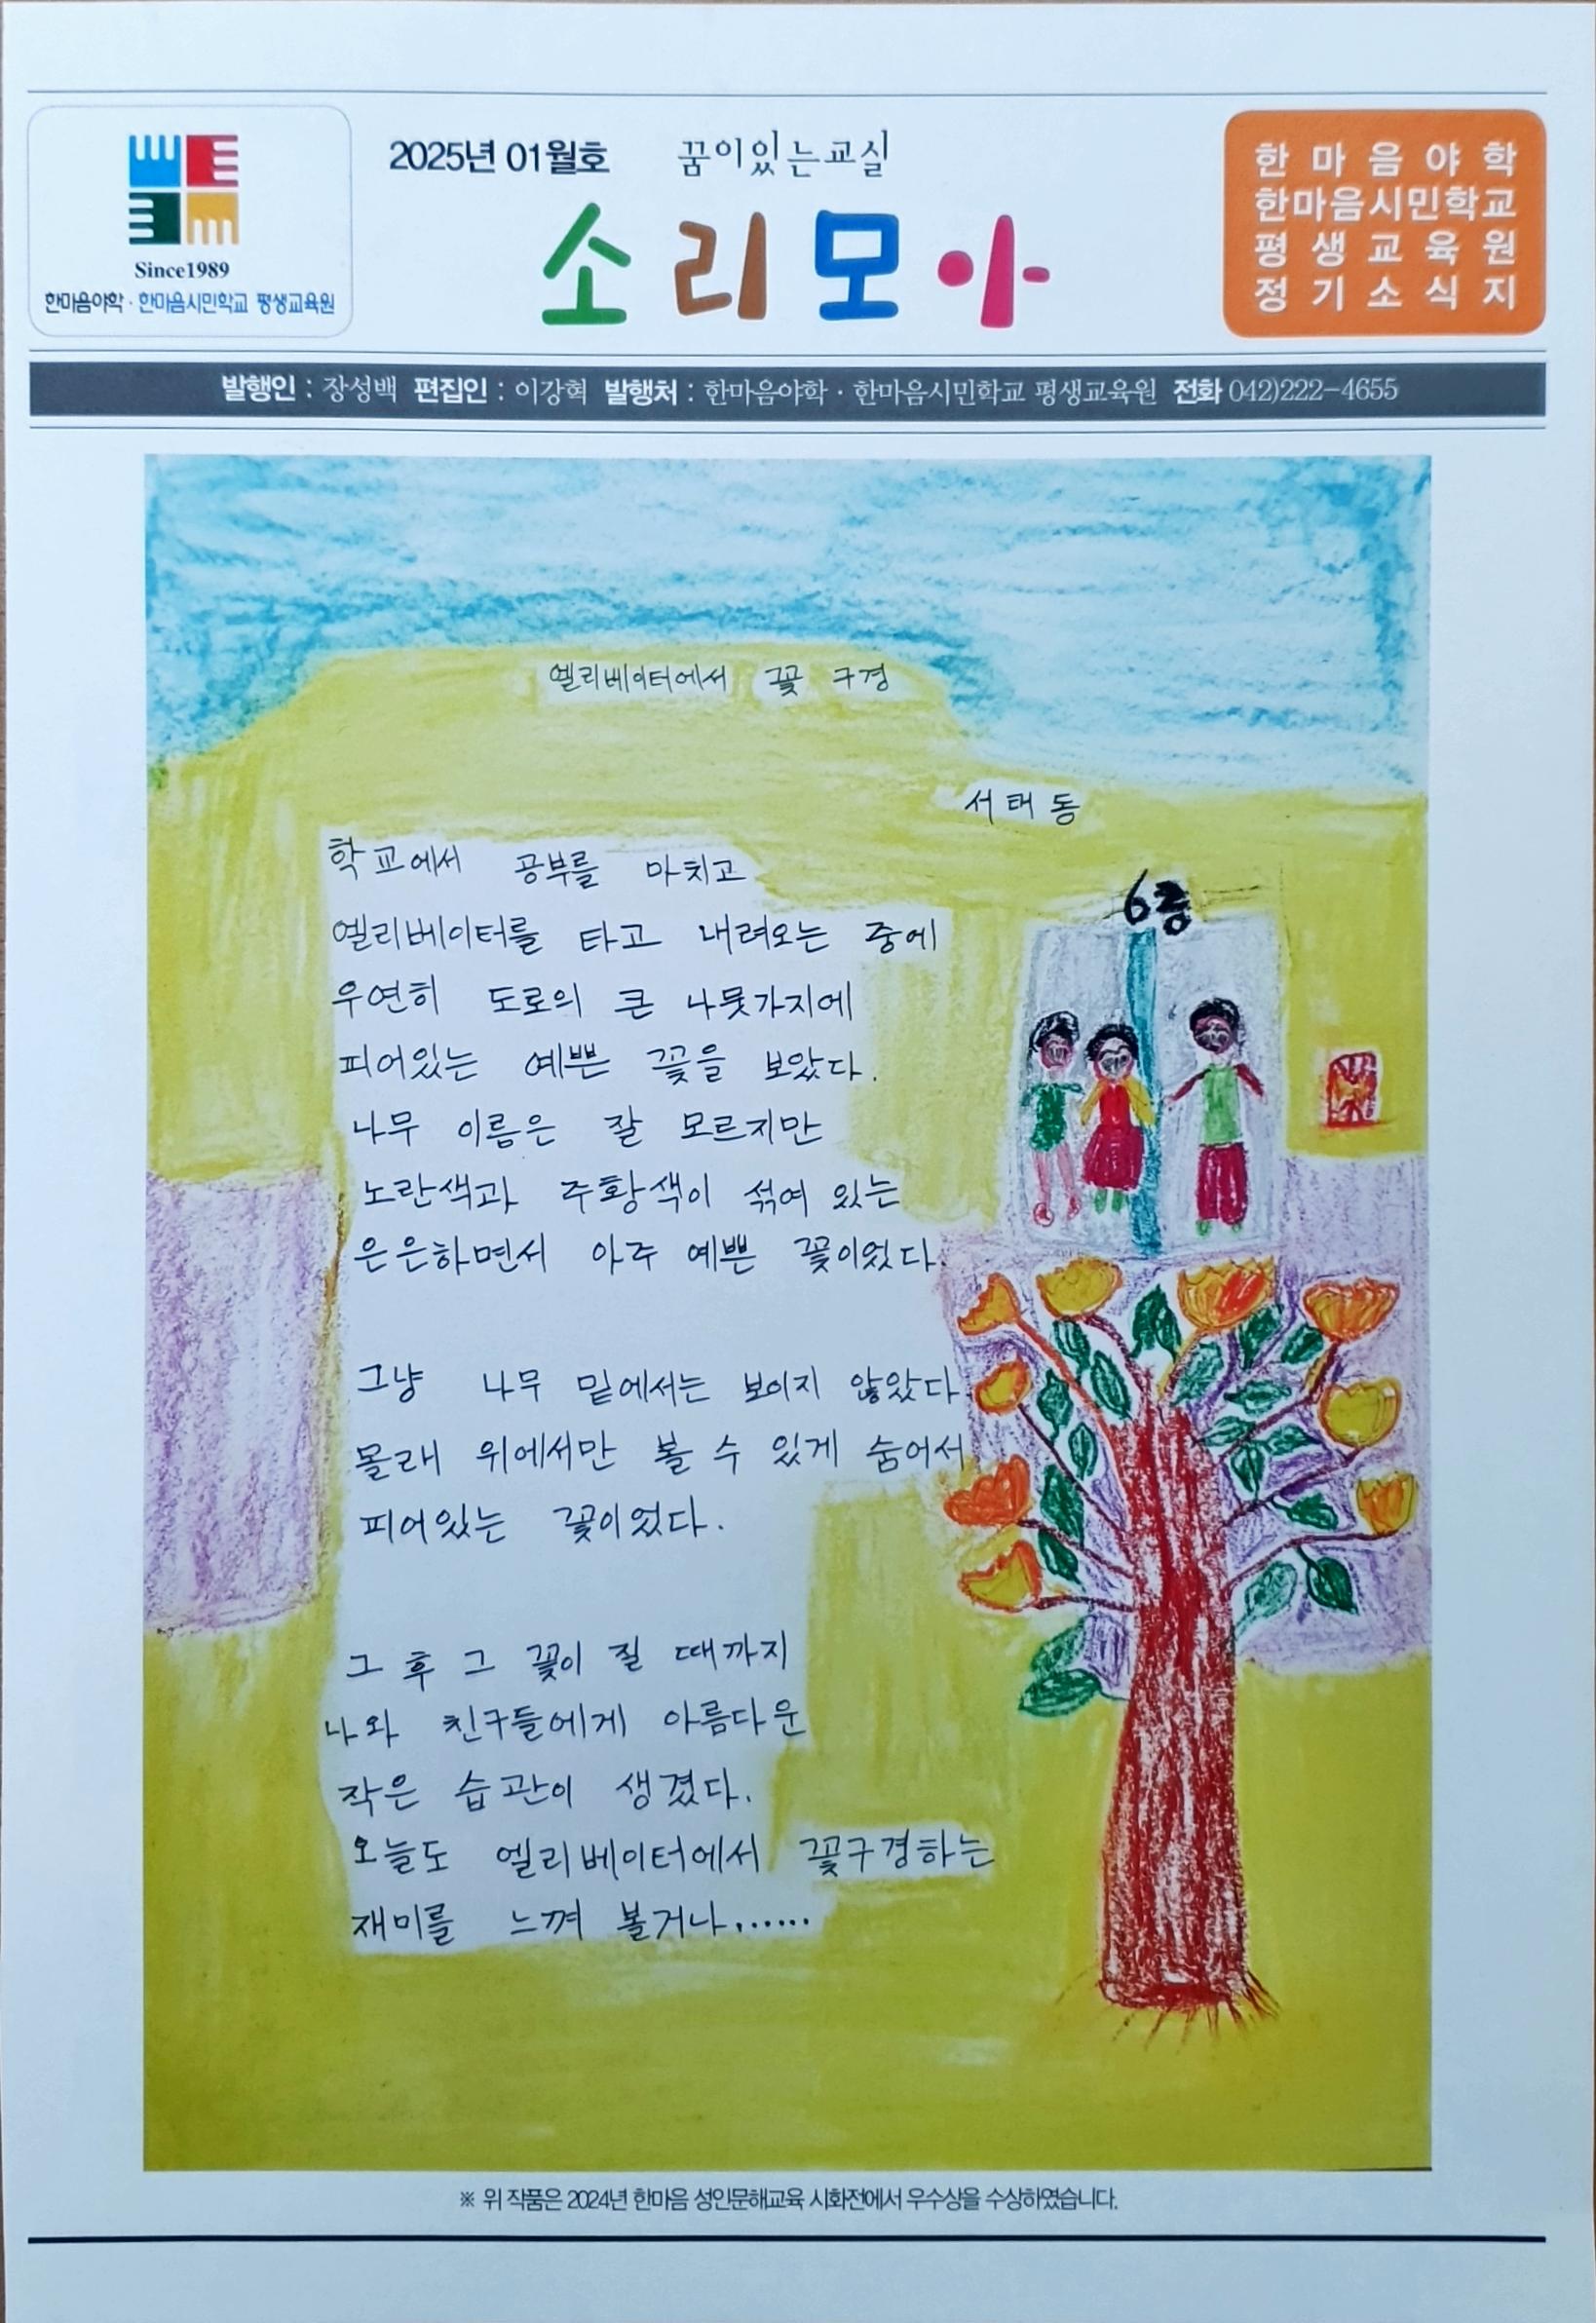 Since1989
한마음야학 · 한마음시민학교 평생교육원
2025년 01월호 꿈이있는교실
소리모아
한마음야학
한마음시민학교
평생교육원
정기소식지
발행인 : 장성백 편집인 : 이강혁 발행처 : 한마음야학 · 한마음시민학교 평생교육원 전화 042)222-4655
엘리베이터에서 꽃 구경
서태동
학교에서 공부를 마치고
엘리베이터를 타고 내려오는 중에
우연히 도로의 큰 나뭇가지에
피어있는 예쁜 꽃을 보았다.
나무 이름은 잘 모르지만
노란색과 주황색이 섞여 있는
은은하면서 아주 예쁜 꽃이었다.
그냥 나무 밑에서는 보이지 않았다
몰래 위에서만 볼 수 있게 숨어서
피어있는 꽃이었다.
그 후 그 꽃이 질 때까지
나와 친구들에게 아름다운
작은 습관이 생겼다.
오늘도 엘리베이터에서 꽃구경하는
재미를 느껴 볼거나......
6층
※ 위 작품은 2024년 한마음 성인문해교육 시화전에서 우수상을 수상하였습니다.